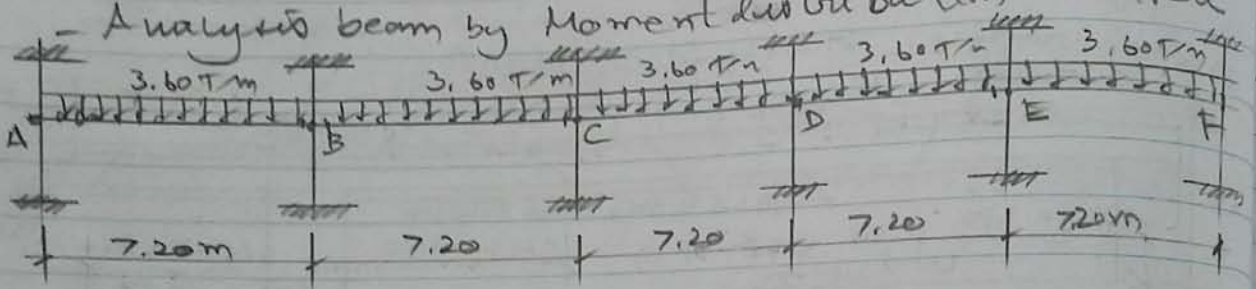 - Analysis beam by Moment
3.60 T/m 3.60 T/m 3.60 T/m 3.60 T/m 3.60 T/m
A B C D E F
7.20m 7.20 7.20 7.20 7.20m